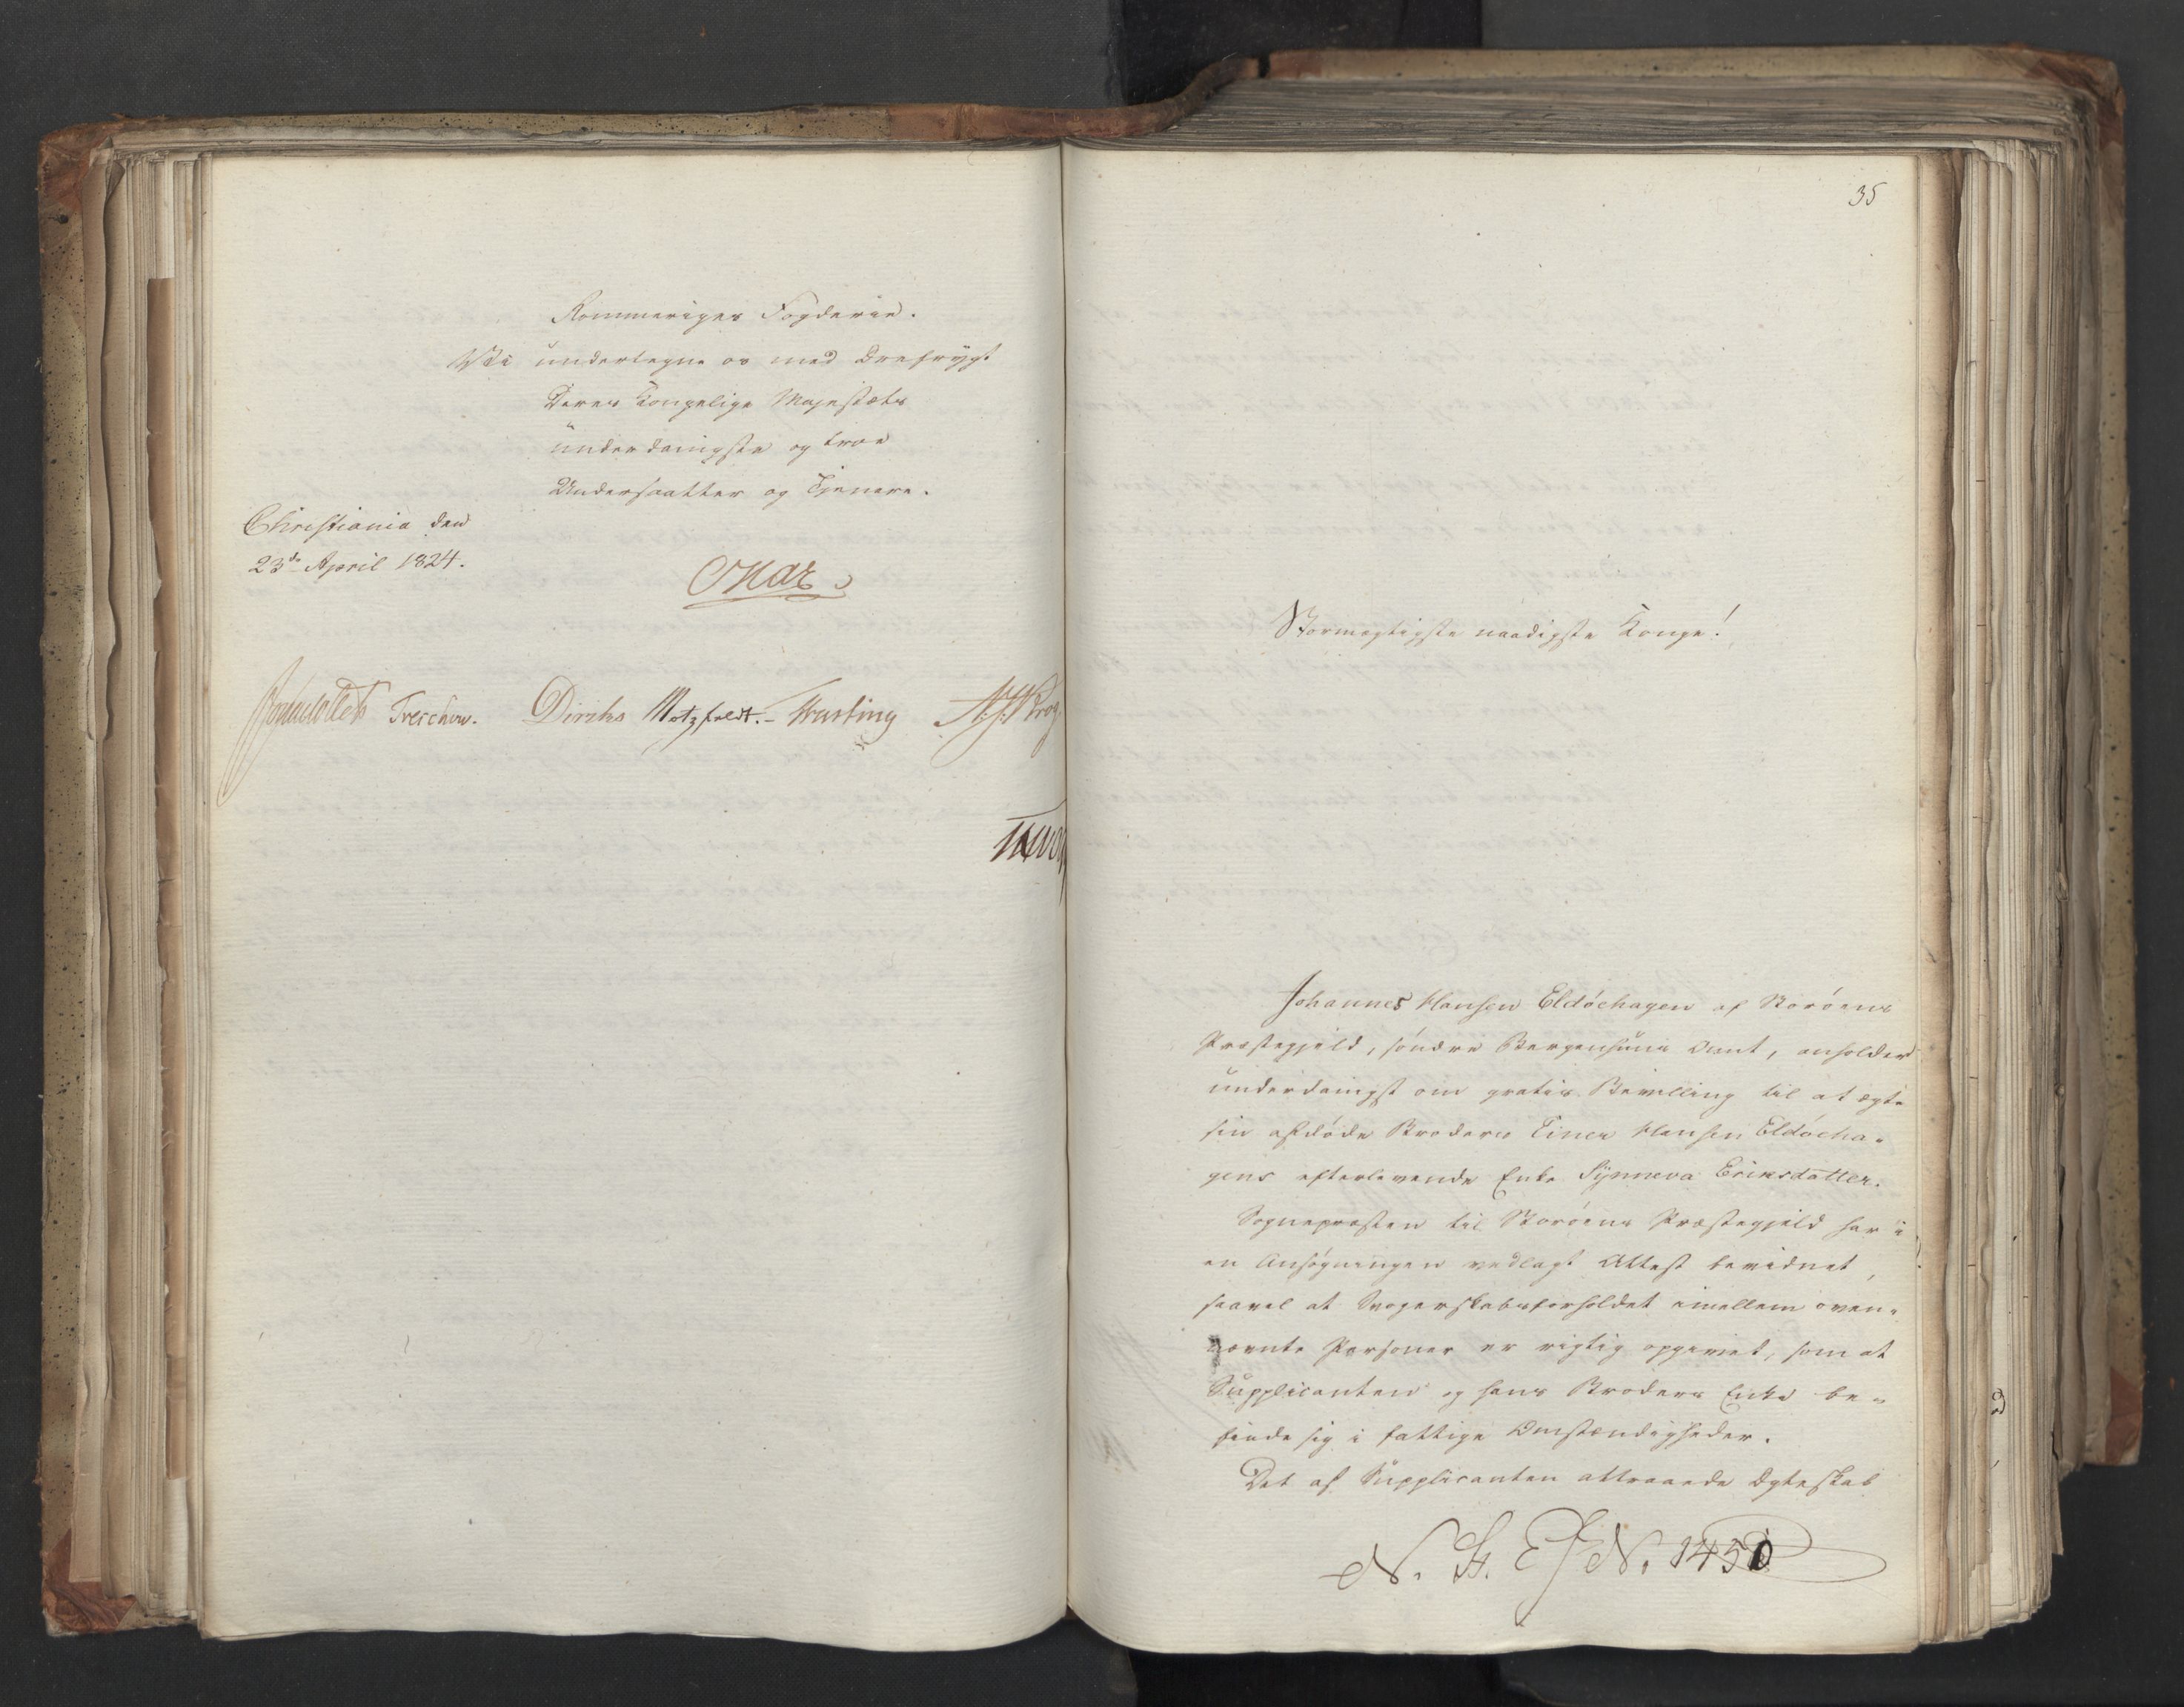 Rommeriges Fogderie.
Vi undertegne os med Ærefrygt
Deres Kongelige Majestæts
underdanigste og troe
Undersaatter og Tjenere.
Christiania den
23de April 1824.
Treschow. Diriks Motzfeldt. Fasting
35
Stormægtigste naadigste Konge!
Johannes Hansen Eldöehagen af Storöens
Præstegjeld, söndre Bergenhuus Amt, anholder
underdanigst om gratis Bevilling til at ægte
sin afdöde Broders Einer Hansen Eldöeha-
gens efterlevende Enke Synneva Eriksdatter.
Sognepræsten til Storöens Præstegjeld har i
en Ansögningen vedlagt Attest bevidnet,
saavel at Svogerskabsforholdet imellem oven-
nævnte Personer er rigtig opgivet, som at
Supplicanten og hans Broders Enke be-
finde sig i fattige Omstændigheder.
Det af Supplicanten attraaede Ægteskab